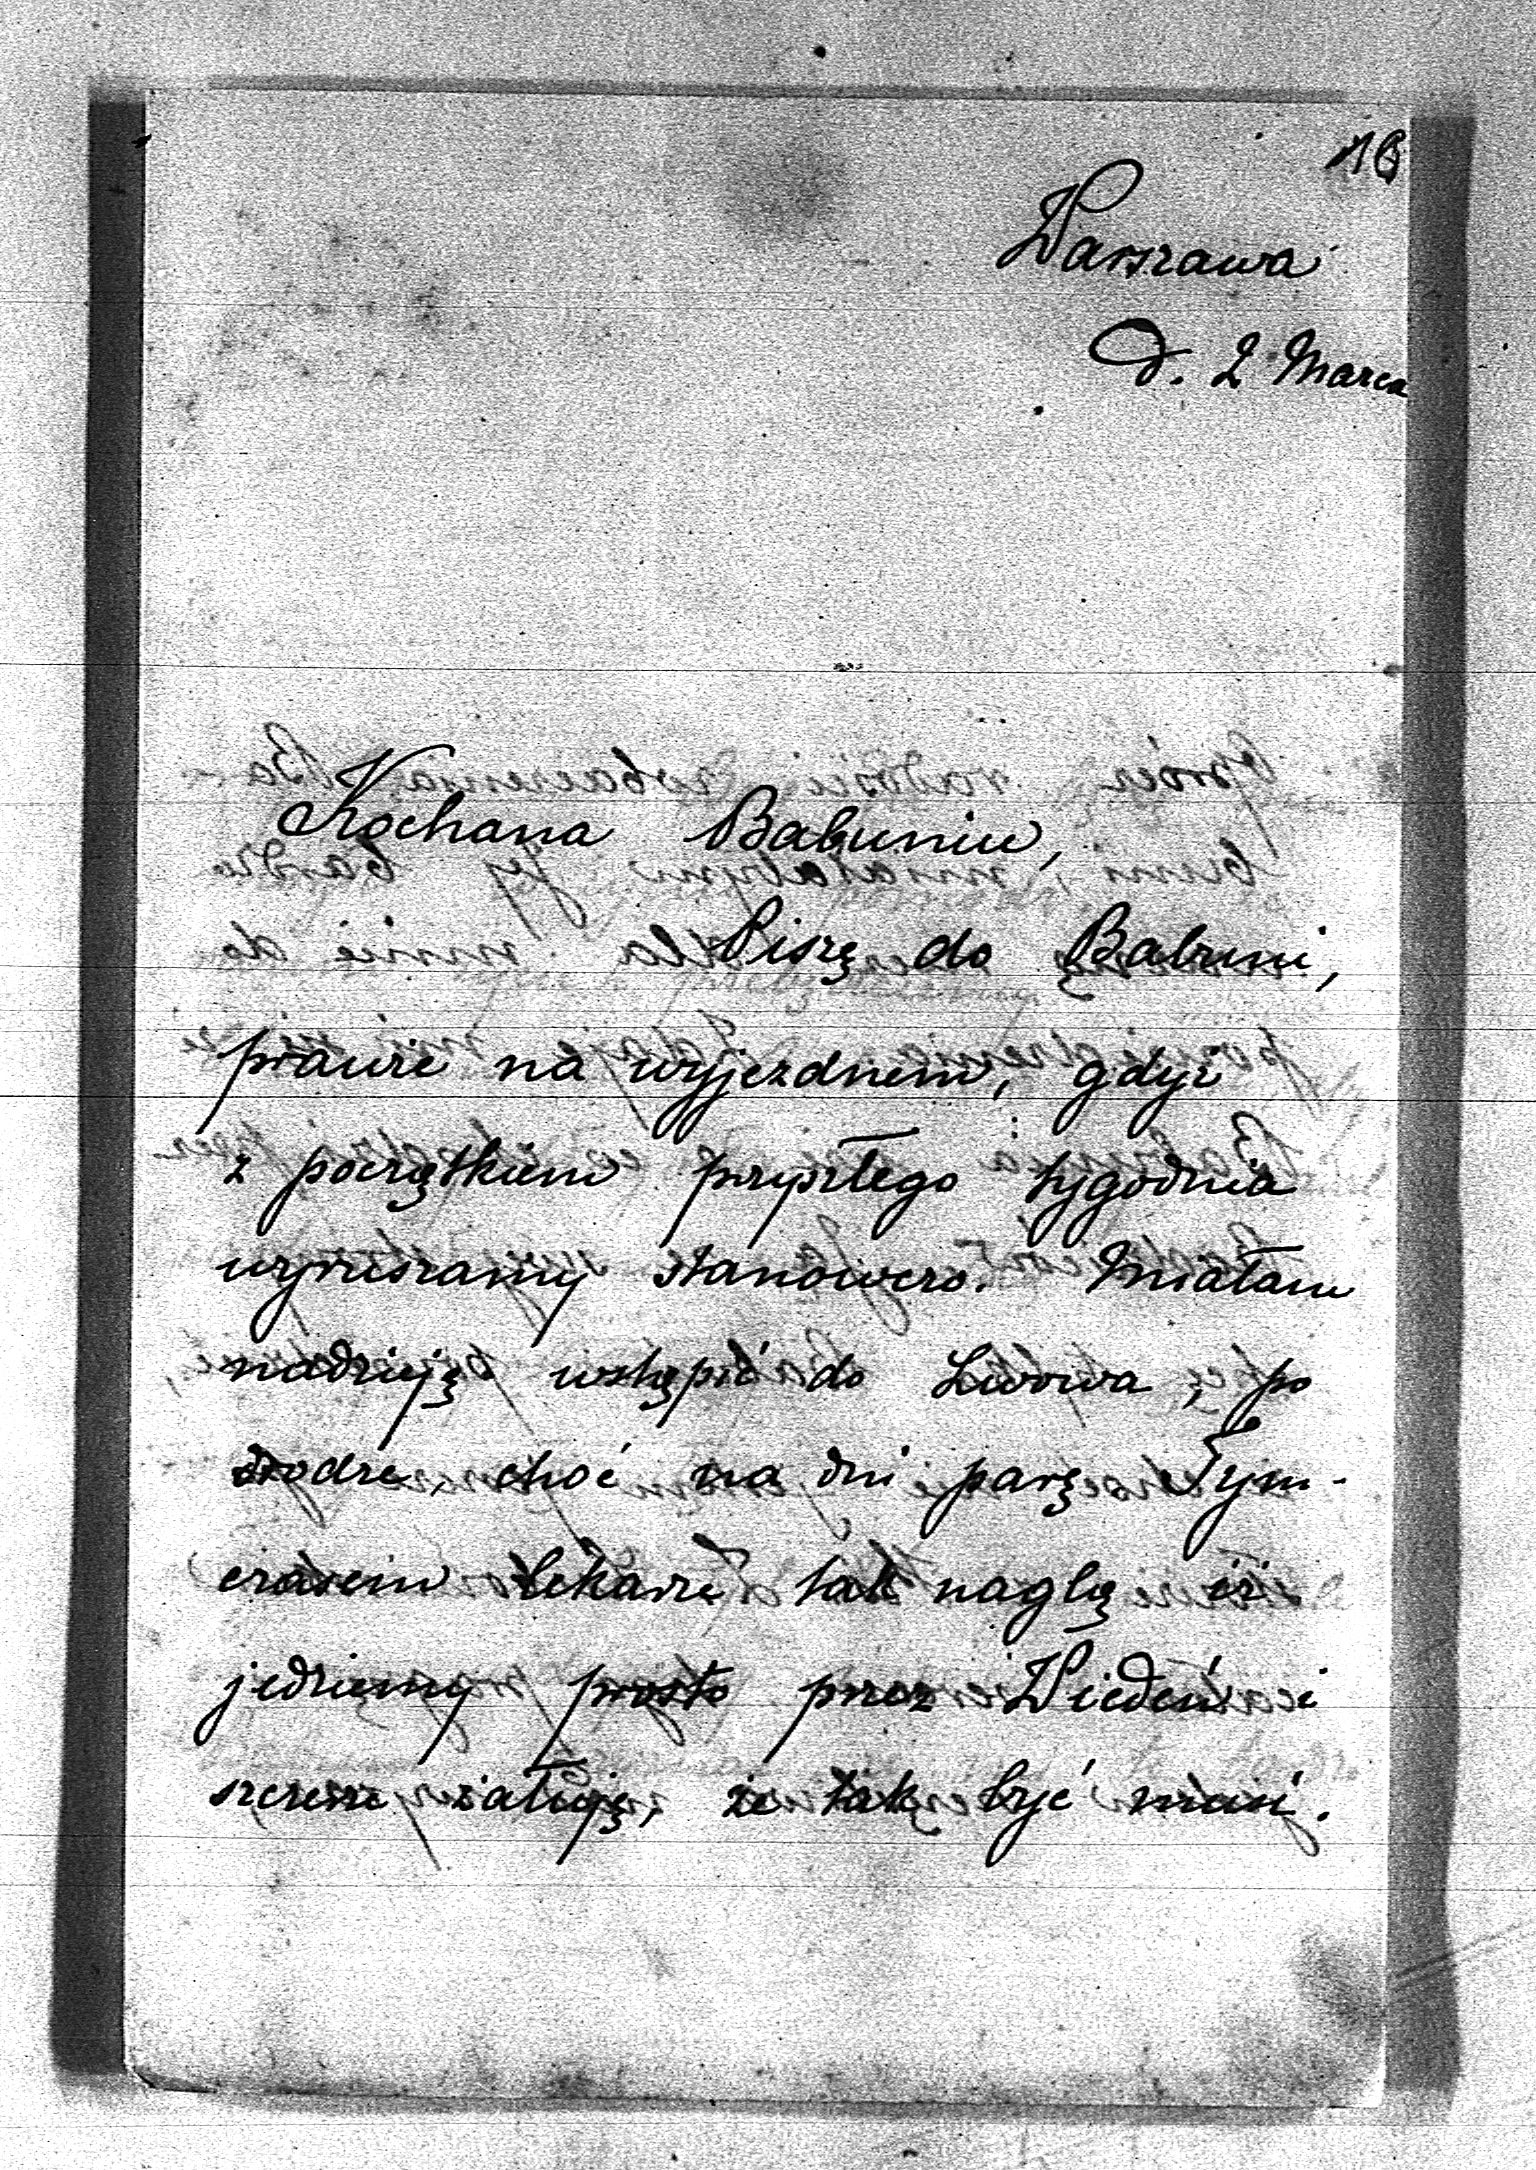 16
Warszawa
d. 2 Marca
Kochana Babuniu,
Piszę do Babuni,
prawie na wyjezdnem, gdyż
z początkiem przyszłego tygodnia
wyruszamy stanowczo. Miałam
nadzieję wstąpić do Lwowa, po
drodze choć na dni parę. Tym-
czasem lekarze tak naglą iż
jedziemy prosto przez Wiedeń i
szczerze żałuję, że tak być musi.